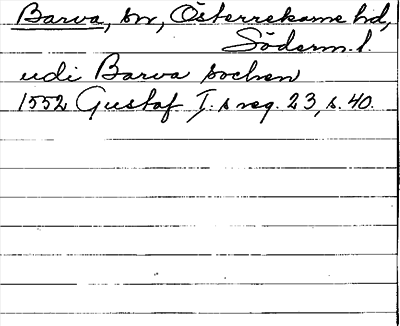 Barva, sn, Österrekarne hd,
Söderm. l.
udi Barva sochen
1552 Gustaf I. s reg. 23, s. 40.